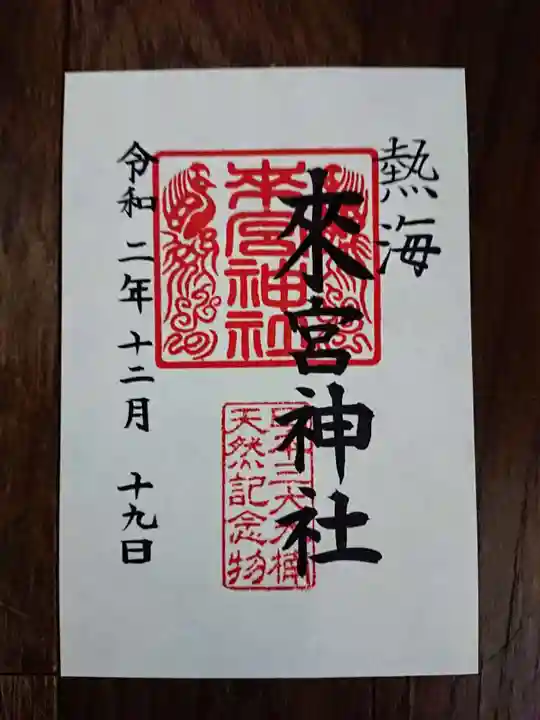 熱海
來宮神社
來宮神社
天然記念物
令和二年十二月十九日